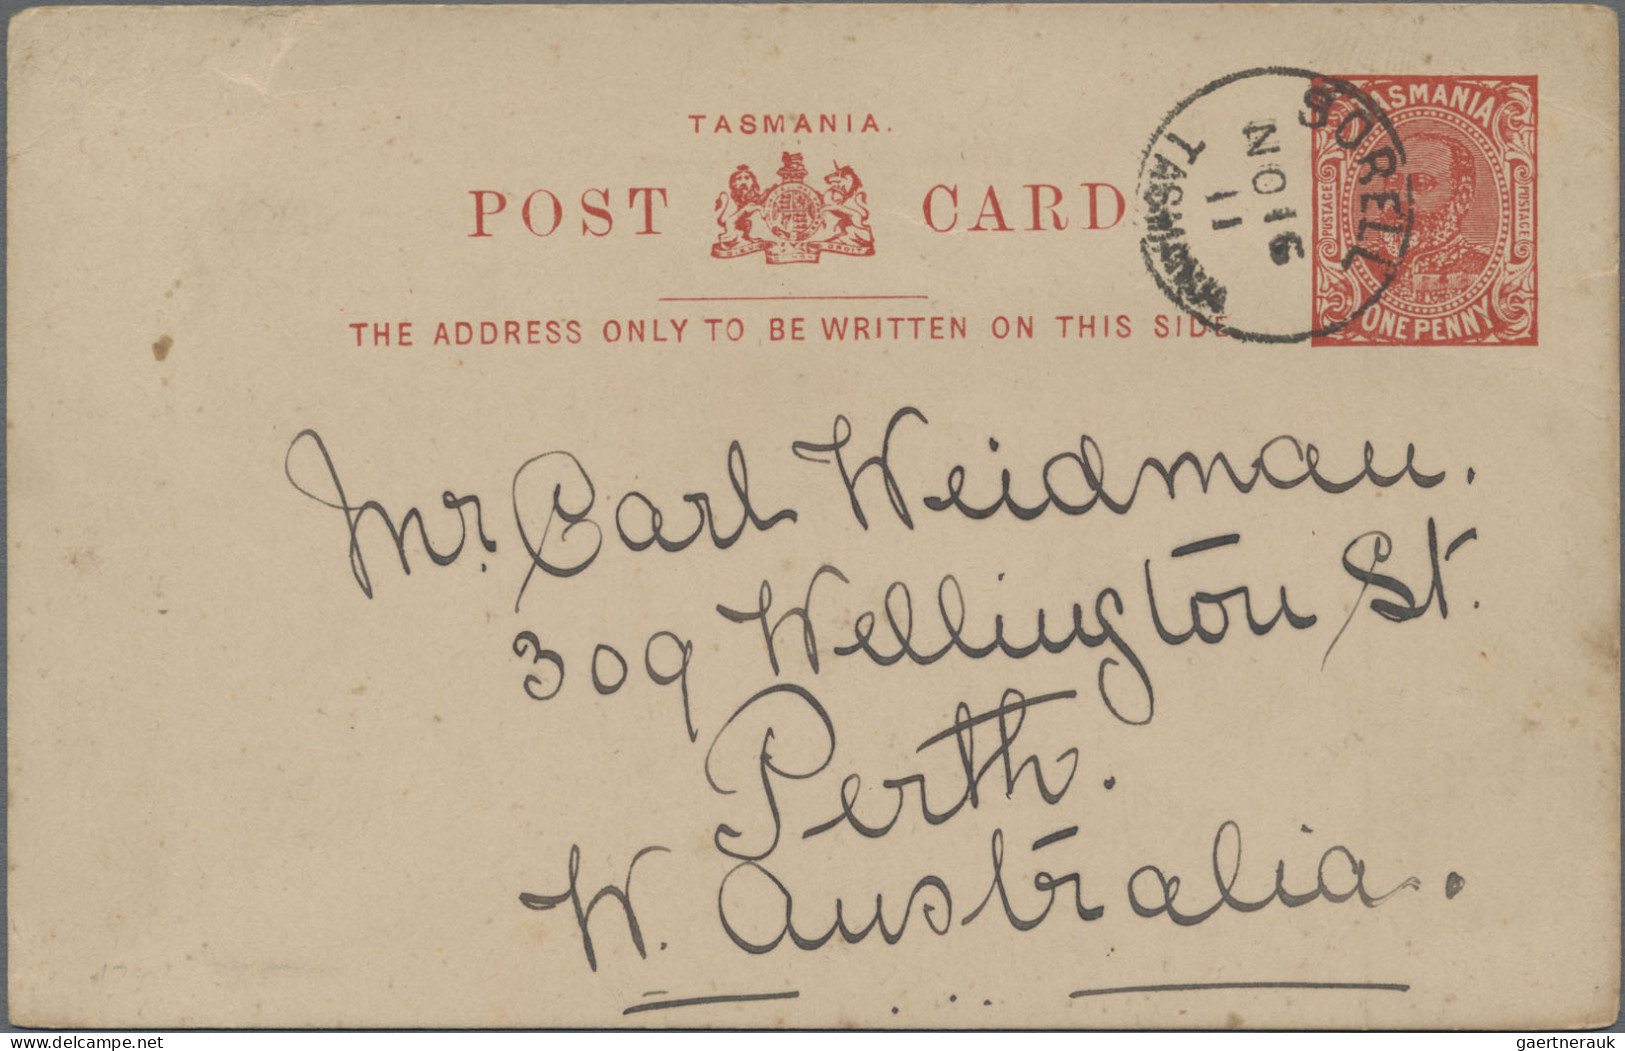 TASMANIA.
POST CARD
THE ADDRESS ONLY TO BE WRITTEN ON THIS SIDE
SORELL
NO 16
11
TASMANIA
TASMANIA
POSTAGE
POSTAGE
ONE PENNY
Mr. Carl Weidman.
309 Wellington St.
Perth.
W. Australia.
delcampe.net
gaertnerauk